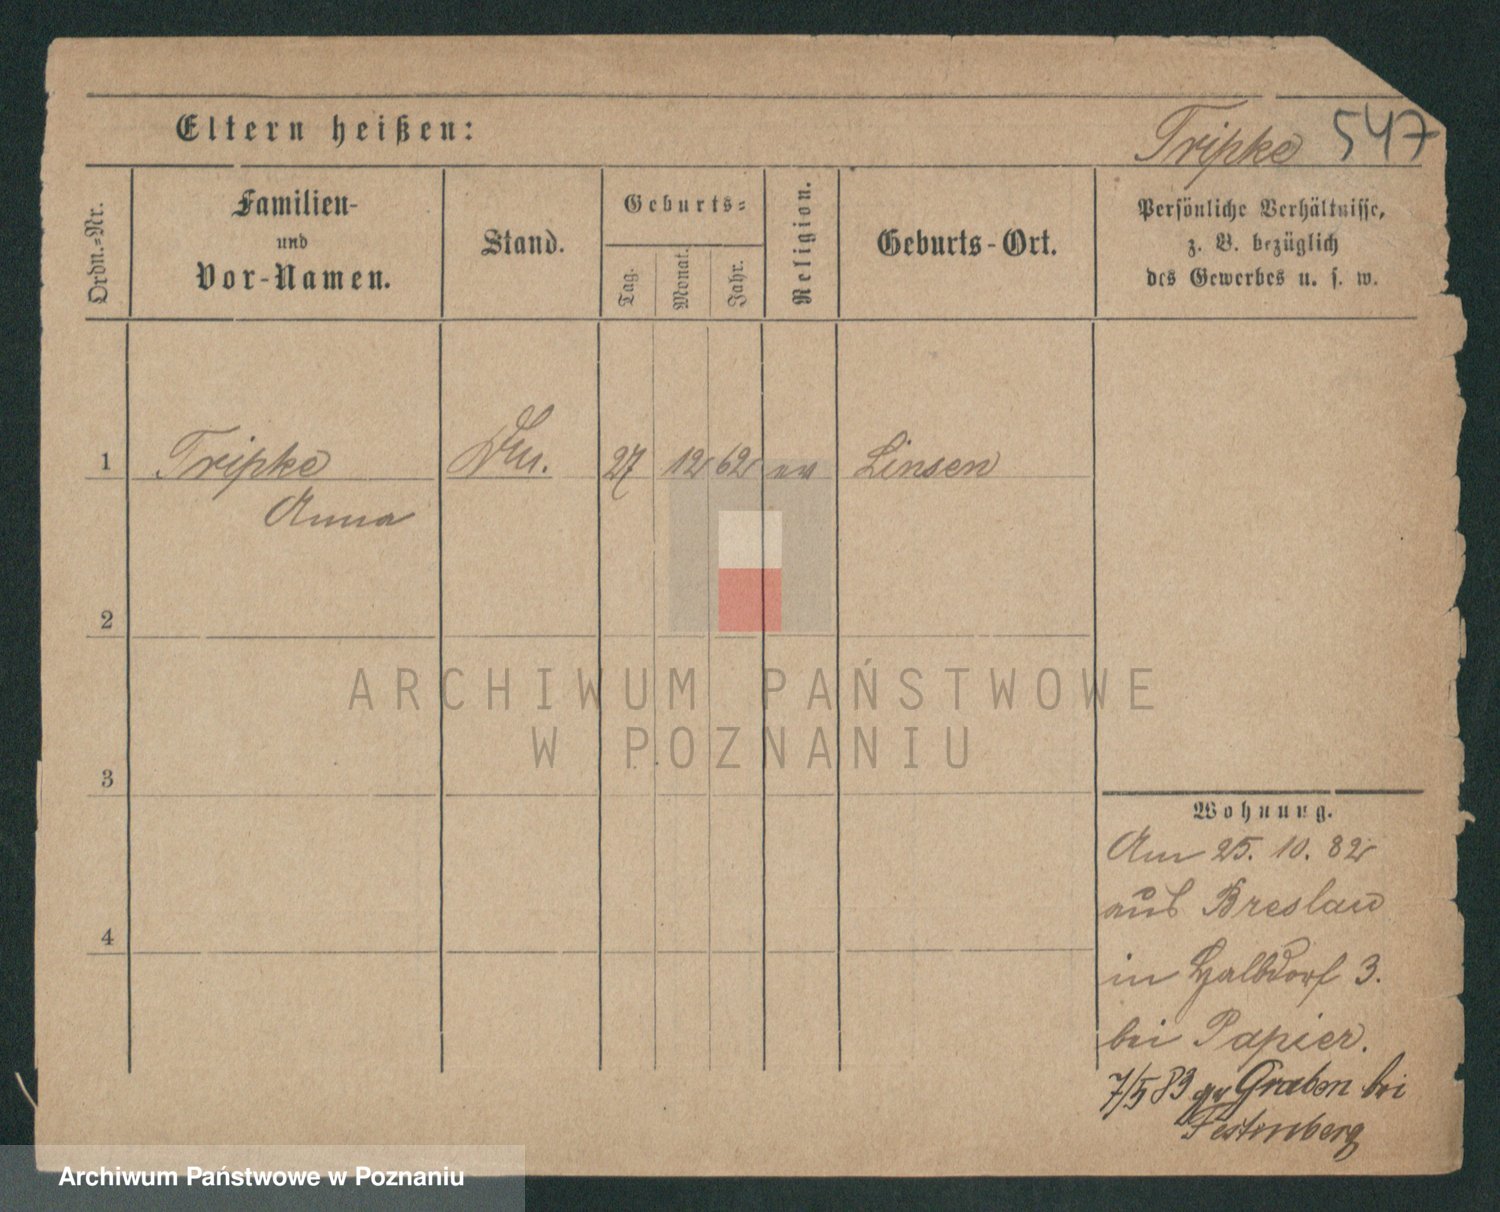 Eltern heißen:
Tripke 547
Ordn.=Nr.
Familien-
und
Vor-Namen.
Stand.
Geburts=
Tag.
Monat.
Jahr.
Religion.
Geburts-Ort.
Persönliche Verhältnisse,
z. B. bezüglich
des Gewerbes u. s. w.
1 Tripke 27 12 62 ev Linsen
Anna
2
3
4
Wohnung.
Am 25. 10. 82
aus Breslau
in Halbdorf 3.
bei Papier.
7/5 83 Graben bei
Festenberg
ARCHIWUM PAŃSTWOWE
W POZNANIU
Archiwum Państwowe w Poznaniu